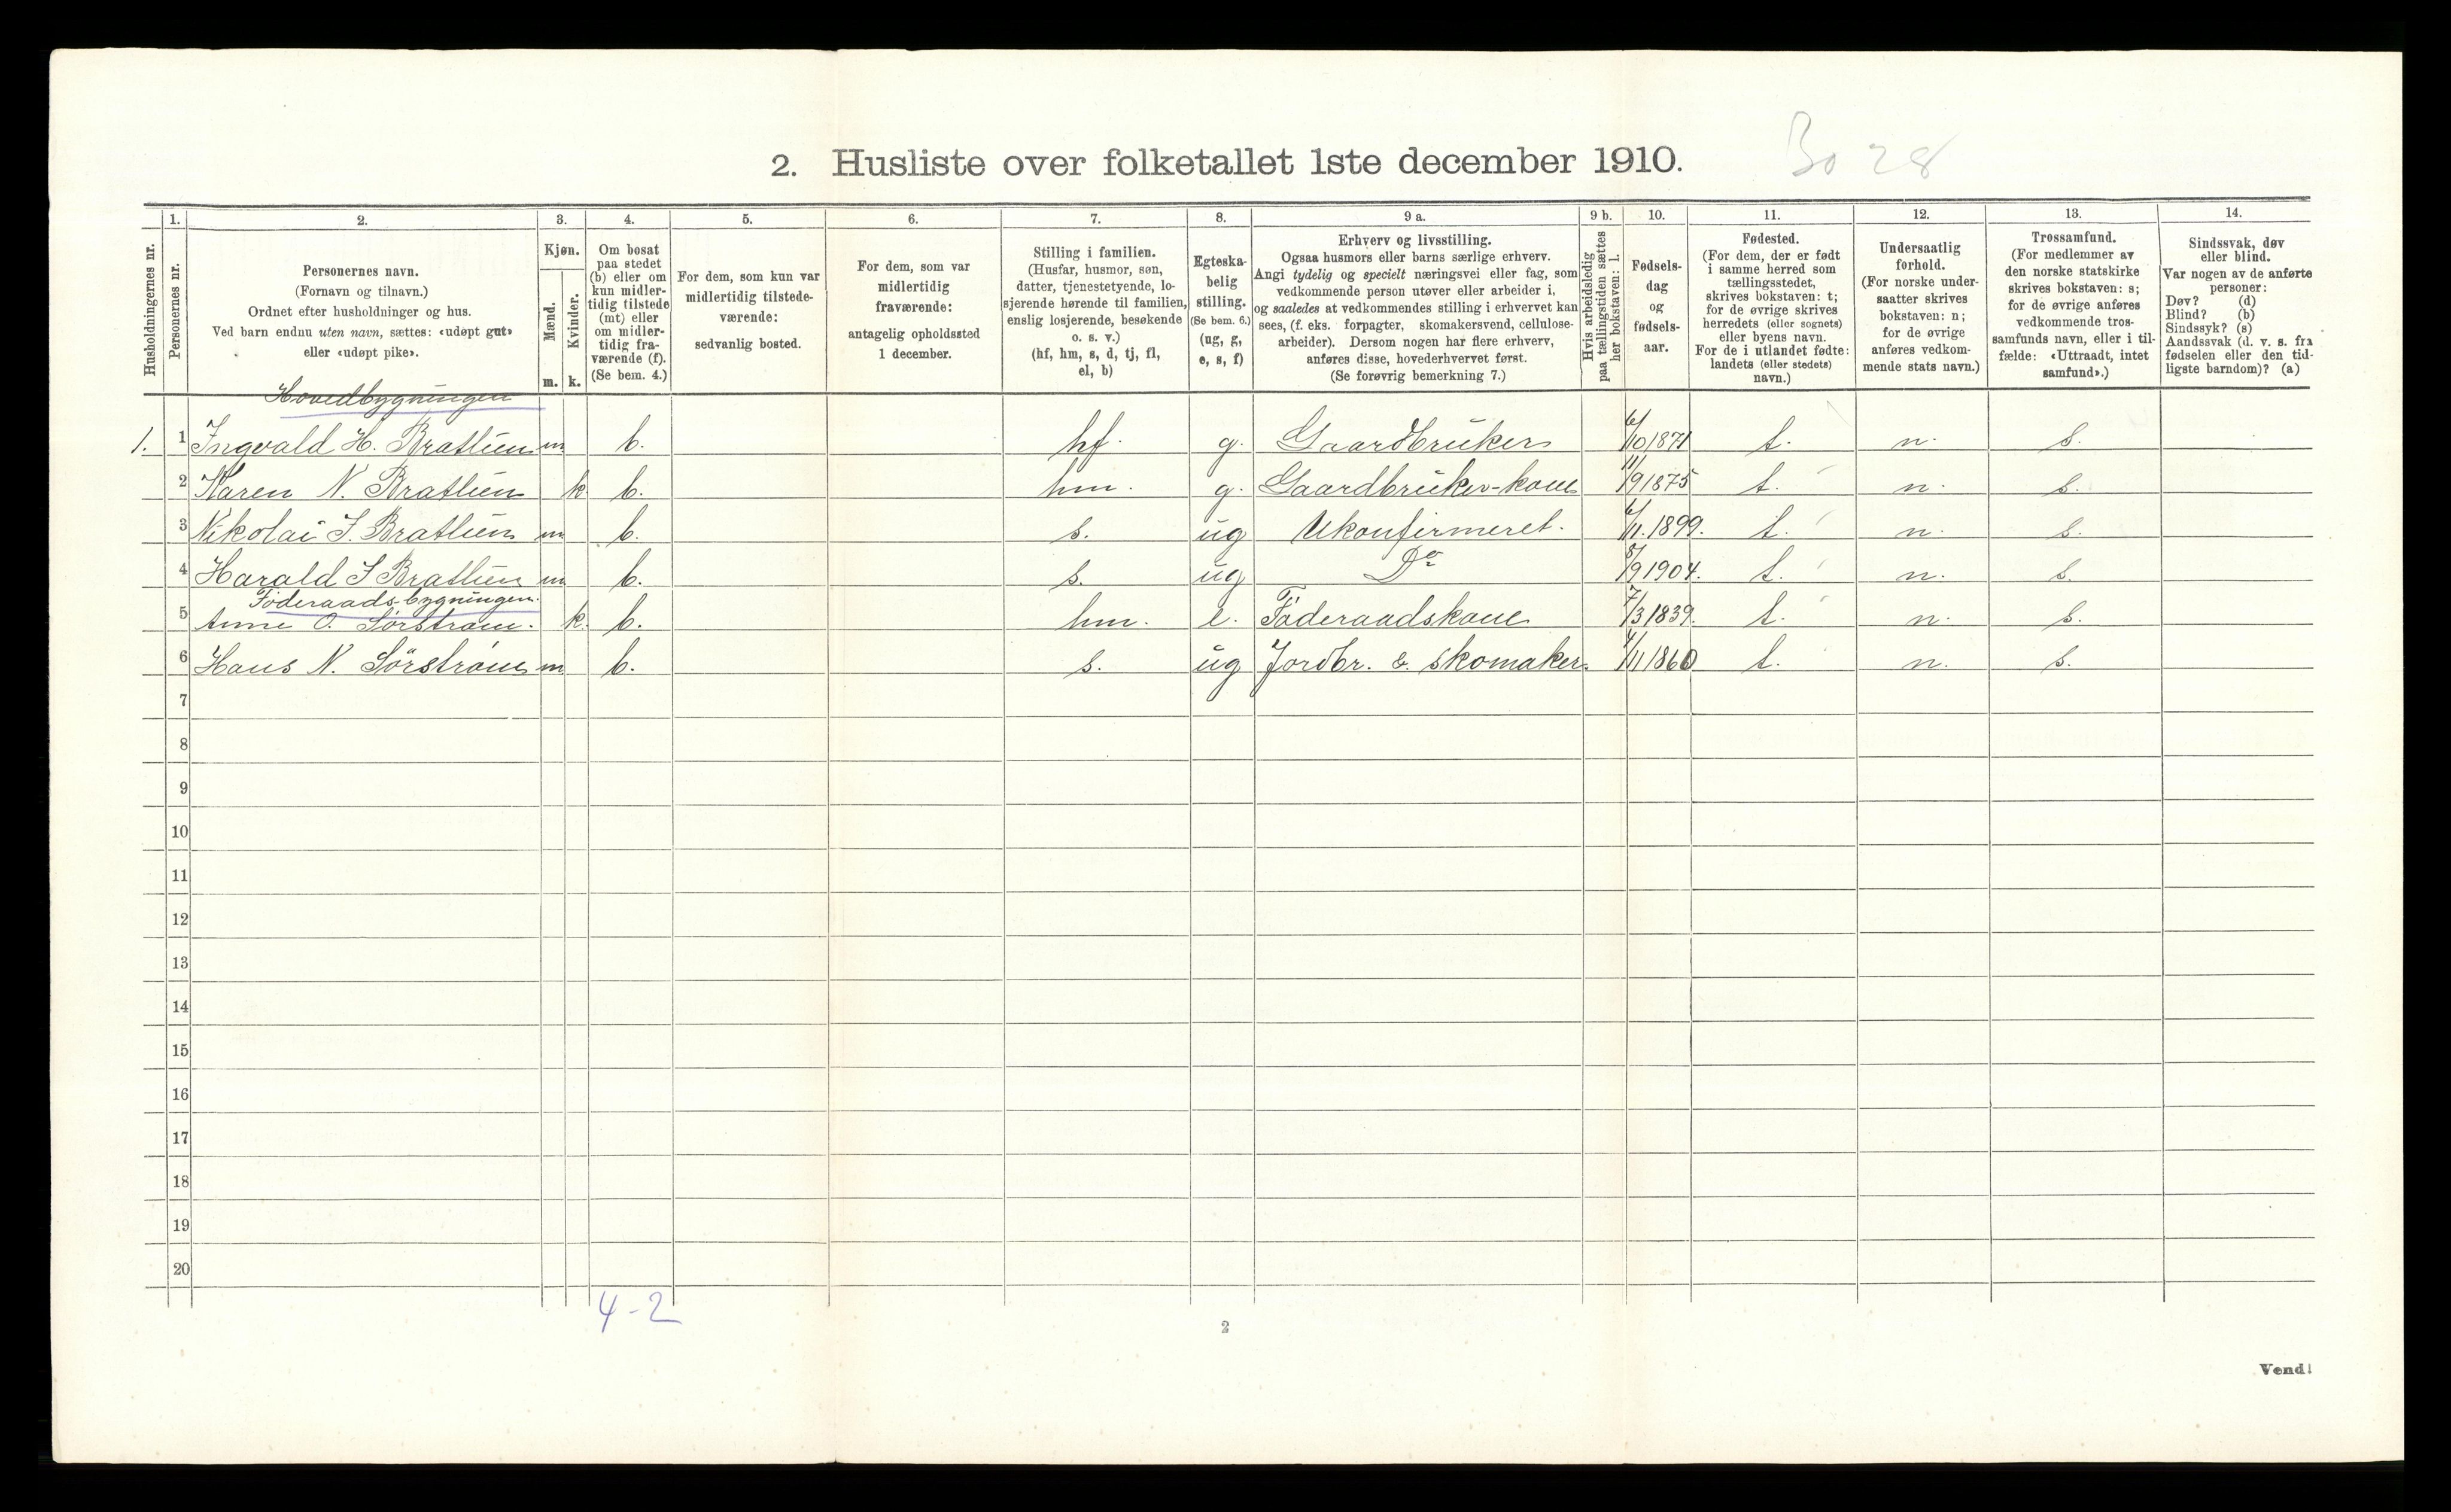 2. Husliste over folketallet 1ste december 1910. Bo 28
1. 2. 3. 4. 5. 6. 7. 8. 9 a. 9 b. 10. 11. 12. 13. 14.
Husholdningernes nr.
Personernes nr.
Personernes navn.
(Fornavn og tilnavn.)
Ordnet efter husholdninger og hus.
Ved barn endnu uten navn, sættes: «udøpt gut»
eller «udøpt pike».
Kjøn.
Mænd.
Kvinder.
m. k.
Om bosat
paa stedet
(b) eller om
kun midler-
tidig tilstede
(mt) eller
om midler-
tidig fra-
værende (f).
(Se bem. 4.)
For dem, som kun var
midlertidig tilstede-
værende:
sedvanlig bosted.
For dem, som var
midlertidig
fraværende:
antagelig opholdssted
1 december.
Stilling i familien.
(Husfar, husmor, søn,
datter, tjenestetyende, lo-
sjerende hørende til familien,
enslig losjerende, besøkende
o. s. v.)
(hf, hm, s, d, tj, fl,
el, b)
Egteska-
belig
stilling.
(Se bem. 6.)
(ug, g,
e, s, f)
Erhverv og livsstilling.
Ogsaa husmors eller barns særlige erhverv.
Angi tydelig og specielt næringsvei eller fag, som
vedkommende person utøver eller arbeider i,
og saaledes at vedkommendes stilling i erhvervet kan
sees, (f. eks. forpagter, skomakersvend, cellulose-
arbeider). Dersom nogen har flere erhverv,
anføres disse, hovederhvervet først.
(Se forøvrig bemerkning 7.)
Hvis arbeidsledig
paa tællingstiden sættes
her bokstaven: l.
Fødsels-
dag
og
fødsels-
aar.
Fødested.
(For dem, der er født
i samme herred som
tællingsstedet,
skrives bokstaven: t;
for de øvrige skrives
herredets (eller sognets)
eller byens navn.
For de i utlandet fødte:
landets (eller stedets)
navn.)
Undersaatlig
forhold.
(For norske under-
saatter skrives
bokstaven: n;
for de øvrige
anføres vedkom-
mende stats navn.)
Trossamfund.
(For medlemmer av
den norske statskirke
skrives bokstaven: s;
for de øvrige anføres
vedkommende tros-
samfunds navn, eller i til-
fælde: «Uttraadt, intet
samfund».)
Sindssvak, døv
eller blind.
Var nogen av de anførte
personer:
Døv? (d)
Blind? (b)
Sindssyk? (s)
Aandssvak (d. v. s. fra
fødselen eller den tid-
ligste barndom)? (a)
Hovedbygningen
1. 1 Ingvald H. Bratlien m b. hf. g. Gaardbruker 6/10 1871 t. n. s.
2 Karen N. Bratlien k b. hm. g. Gaardbruker-kone 11/9 1875 t. n. s.
3 Nikolai I. Bratlien m b. s. ug Ukonfirmeret. 6/11.1899. t. n. s.
4 Harald I Bratlien m b. s. ug Do 8/9 1904. t. n. s.
Föderaads-bygningen.
5 Anne O. Sörström. k. b. hm. e. Föderaadskone 7/3 1839. t. n. s.
6 Hans N. Sörström m b. s. ug Jordbr. & skomaker. 4/11 1860 t. n. s.
7
8
9
10
11
12
13
14
15
16
17
18
19
20
4-2
2
Vend!